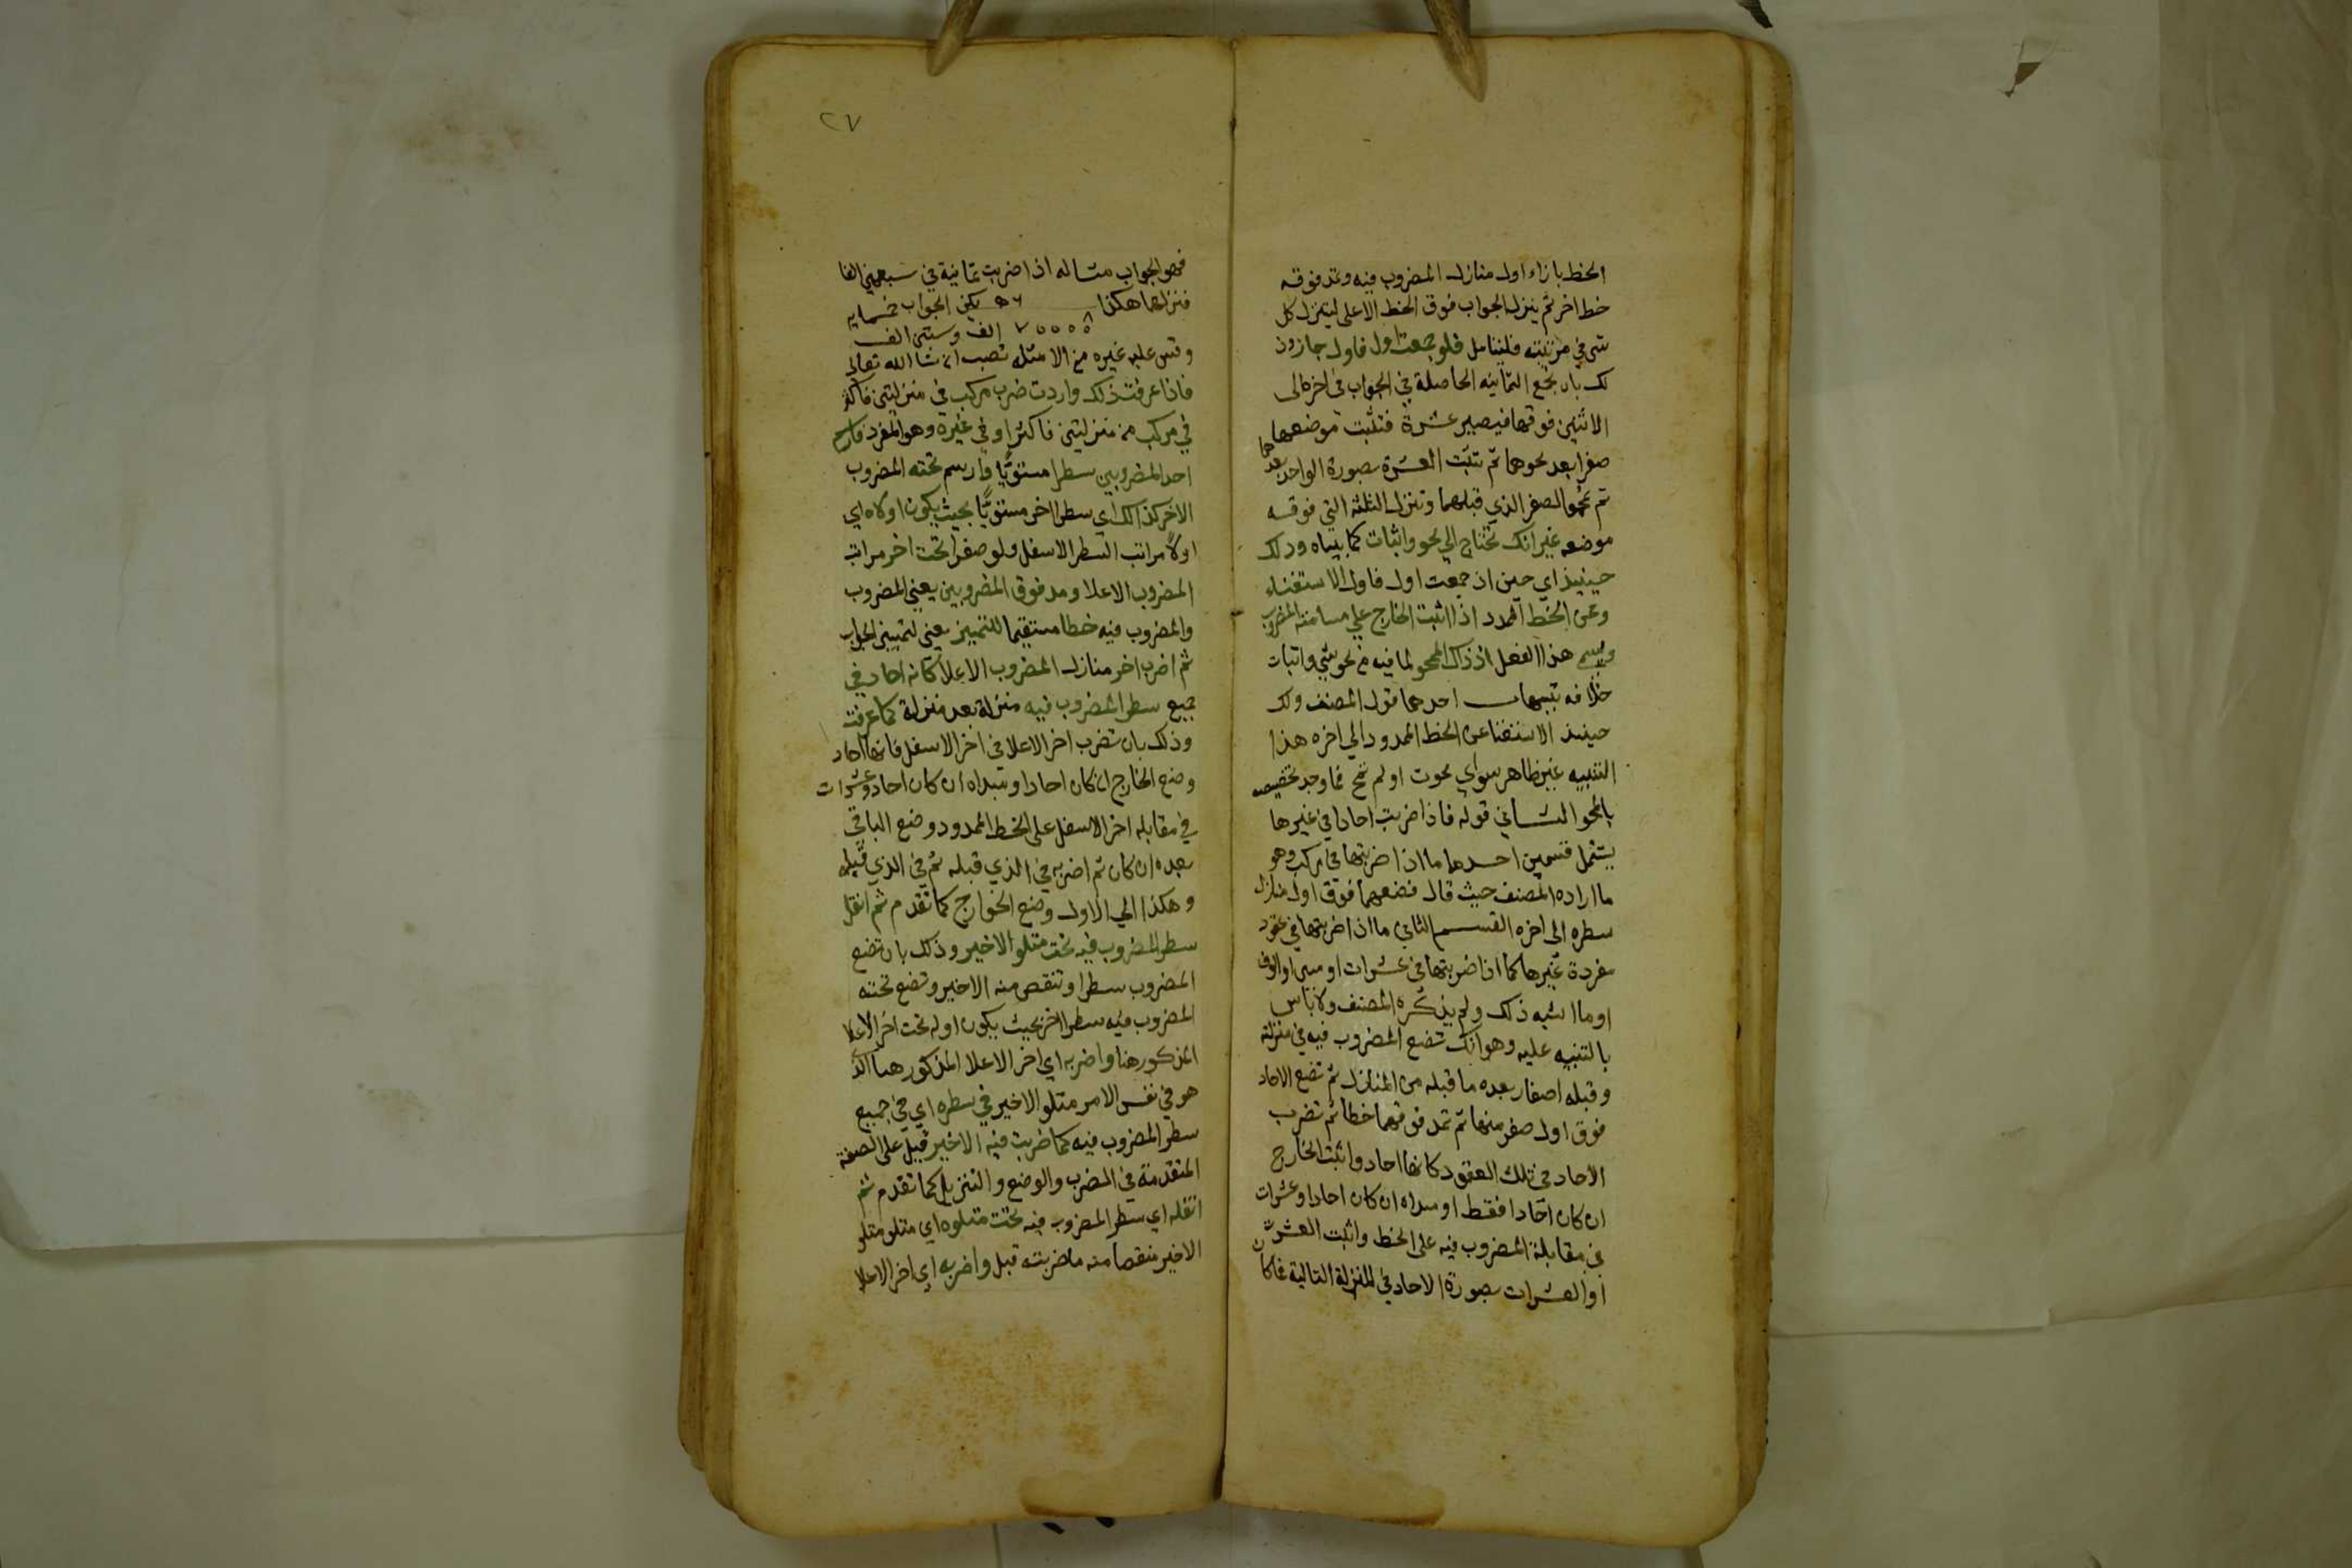 الخط بازاء اول منازل المضروب فيه ومد فوقه
خط اخر ثم ينزل الجواب فوق الخط الاعلى لينزل كل
شي في مرتبته فليتامل فلو جمعت اول فاول جاز وذ
لك بان تجمع الثمانيه الحاصلة في الجواب في اخره الى
الاثنين فوقها فيصير عشرة فتثبت موضعها
صفرا بعد محوهما ثم تثبت العشرة بصورة الواحد بعدها
ثم تمحو الصفر الذي قبلهما وتنزل الثلثة التي فوقه
موضعه غير انك تحتاج الى محو واثبات كما بيناه وذلك
حينيذ اي حين اذ جمعت اول فاول الاستغناء
وعن الخط الممدد اذا اثبت الخارج على مسامته المضروب
ويسمى هذا الفعل اذ ذاك المحو لما فيه من محو شي واثبات
خلافه تنبيهات احدها قول المصنف ولك
حينيذ الاستغنا عن الخط الممدود الى اخره هذا
التنبيه غير ظاهر سواي محوت او لم تمح فما وجد تخصيصه
بالمحو الثاني قوله فاذا ضربت احادا في غيرها
يشتمل قسمين احدها ما اذا ضربتها في مركب وهو
ما اراده المصنف حيث قال فضعهما فوق اول منازل
سطره الى اخره القسم الثاني ما اذا ضربتها في عقود
مفردة غيرها كما اذا ضربتها في عشرات او مين او الوف
او ما اشبه ذلك ولم يذكره المصنف ولا باس
بالتنبيه عليه وهو انك تضع المضروب فيه في منزلة
وقبله اصفار بعده ما قبله من المنازل ثم تضع الاحاد
فوق اول صفر منها ثم تمد فوقهما خطا ثم تضرب
الاحاد في تلك العقود كانها احاد واثبت الخارج
ان كان احادا فقط او مبداه ان كان احادا وعشرات
في مقابلة المضروب فيه على الخط واثبت العشرة
او العشرات بصورة الاحاد في المنزلة التالية فما كان
٢٧
فهو الجواب مثاله اذا ضربت ثمانية في سبعين الفا
فنزلهما هكذا ٥٦ يكن الجواب خمسمايه
٨ ٧٠٠٠٠ الف وستين الف
وقس عليه غيره من الامثله تصب ان شا الله تعالى
فاذا عرفت ذلك واردت ضرب مركب في منزلتين فاكثر
في مركب من منزلتين فاكثر او في غيره وهو المفرد فارسم
احد المضروبين سطرا مستويا وارسم تحته المضروب
الاخر كذالك اي سطرا اخر مستويا بحيث يكون اولاه اي
اولا مراتب السطر الاسفل ولو صفرا تحت اخر مراتب
المضروب الاعلا ومد فوق المضروبين يعني المضروب
والمضروب فيه خطا مستقيما للتمييز يعني لتمييز الجواب
ثم اضرب اخر منازل المضروب الاعلا كانه احاد في
جميع سطر المضروب فيه منزلة بعد منزلة كما عرفت
وذلك بان تضرب اخر الاعلا في اخر الاسفل فانها احاد
وضع الخارج ان كان احادا او مبداه ان كان احاد وعشرات
في مقابله اخر الاسفل على الخط الممدود وضع الباقي
بعده ان كان ثم اضربه في الذي قبله ثم في الذي قبله
وهكذا الي الاول وضع الخوارج كما تقدم ثم انقل
سطر المضروب فيه تحت متلو الاخير وذلك بان تضع
المضروب سطرا وتنقص منه الاخير وتضع تحته
المضروب فيه سطرا اخر بحيث يكون اوله تحت اخر الاعلا
المذكور هنا واضربه اي اخر الاعلا المذكور هنا الذي
هو في نفس الامر متلو الاخير في سطره اي في جميع
سطر المضروب فيه كما ضربت فيه الاخير قبل على الصفة
المتقدمة في الضرب والوضع والتنزيل كما تقدم ثم
انقله اي سطر المضروب فيه تحت متلوه اي متلو متلو
الاخير منقصا منه ما ضربته قبل واضربه اي اخر الاعلا